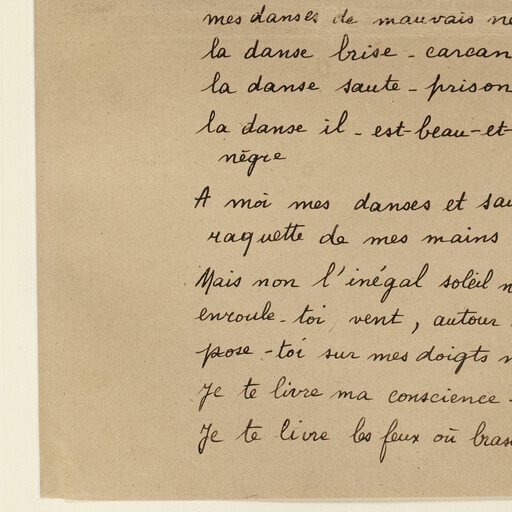 mes danses de mauvais
la danse brise - carcan
la danse saute - prison
la danse il - est-beau-et-
nègre
A moi mes danses et
raquette de mes mains
Mais non l'inégal soleil
enroule-toi, vent, autour
pose-toi sur mes doigts
Je te livre ma conscience -
Je te livre les feux où